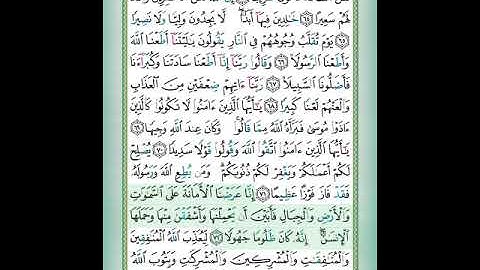 لَهُمْ سَعِيرًا ٦٤ خَالِدِينَ فِيهَا أَبَدًا ۖ لَّا يَجِدُونَ وَلِيًّا وَلَا نَصِيرًا
٦٥ يَوْمَ تُقَلَّبُ وُجُوهُهُمْ فِي النَّارِ يَقُولُونَ يَا لَيْتَنَا أَطَعْنَا اللَّهَ
وَأَطَعْنَا الرَّسُولَا ٦٦ وَقَالُوا رَبَّنَا إِنَّا أَطَعْنَا سَادَتَنَا وَكُبَرَاءَنَا
فَأَضَلُّونَا السَّبِيلَا ٦٧ رَبَّنَا آتِهِمْ ضِعْفَيْنِ مِنَ الْعَذَابِ
وَالْعَنْهُمْ لَعْنًا كَبِيرًا ٦٨ يَا أَيُّهَا الَّذِينَ آمَنُوا لَا تَكُونُوا كَالَّذِينَ
آذَوْا مُوسَىٰ فَبَرَّأَهُ اللَّهُ مِمَّا قَالُوا ۚ وَكَانَ عِندَ اللَّهِ وَجِيهًا ٦٩
يَا أَيُّهَا الَّذِينَ آمَنُوا اتَّقُوا اللَّهَ وَقُولُوا قَوْلًا سَدِيدًا ٧٠ يُصْلِحْ
لَكُمْ أَعْمَالَكُمْ وَيَغْفِرْ لَكُمْ ذُنُوبَكُمْ ۗ وَمَن يُطِعِ اللَّهَ وَرَسُولَهُ
فَقَدْ فَازَ فَوْزًا عَظِيمًا ٧١ إِنَّا عَرَضْنَا الْأَمَانَةَ عَلَى السَّمَاوَاتِ
وَالْأَرْضِ وَالْجِبَالِ فَأَبَيْنَ أَن يَحْمِلْنَهَا وَأَشْفَقْنَ مِنْهَا وَحَمَلَهَا
الْإِنسَانُ ۖ إِنَّهُ كَانَ ظَلُومًا جَهُولًا ٧٢ لِّيُعَذِّبَ اللَّهُ الْمُنَافِقِينَ
وَالْمُنَافِقَاتِ وَالْمُشْرِكِينَ وَالْمُشْرِكَاتِ وَيَتُوبَ اللَّهُ